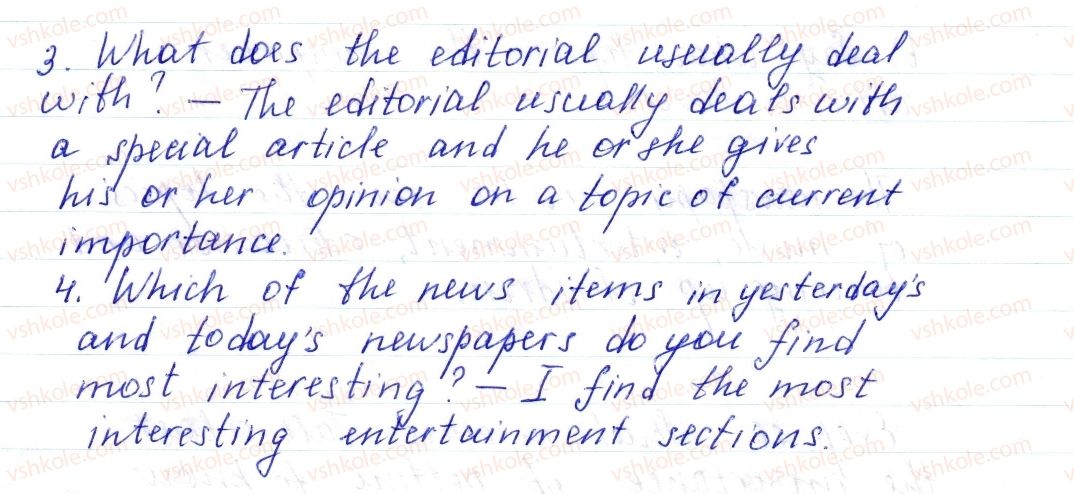 3. What does the editorial usually deal
with? — The editorial usually deals with
a special article and he or she gives
his or her opinion on a topic of current
importance.
4. Which of the news items in yesterday's
and today's newspapers do you find
most interesting? — I find the most
interesting entertainment sections.